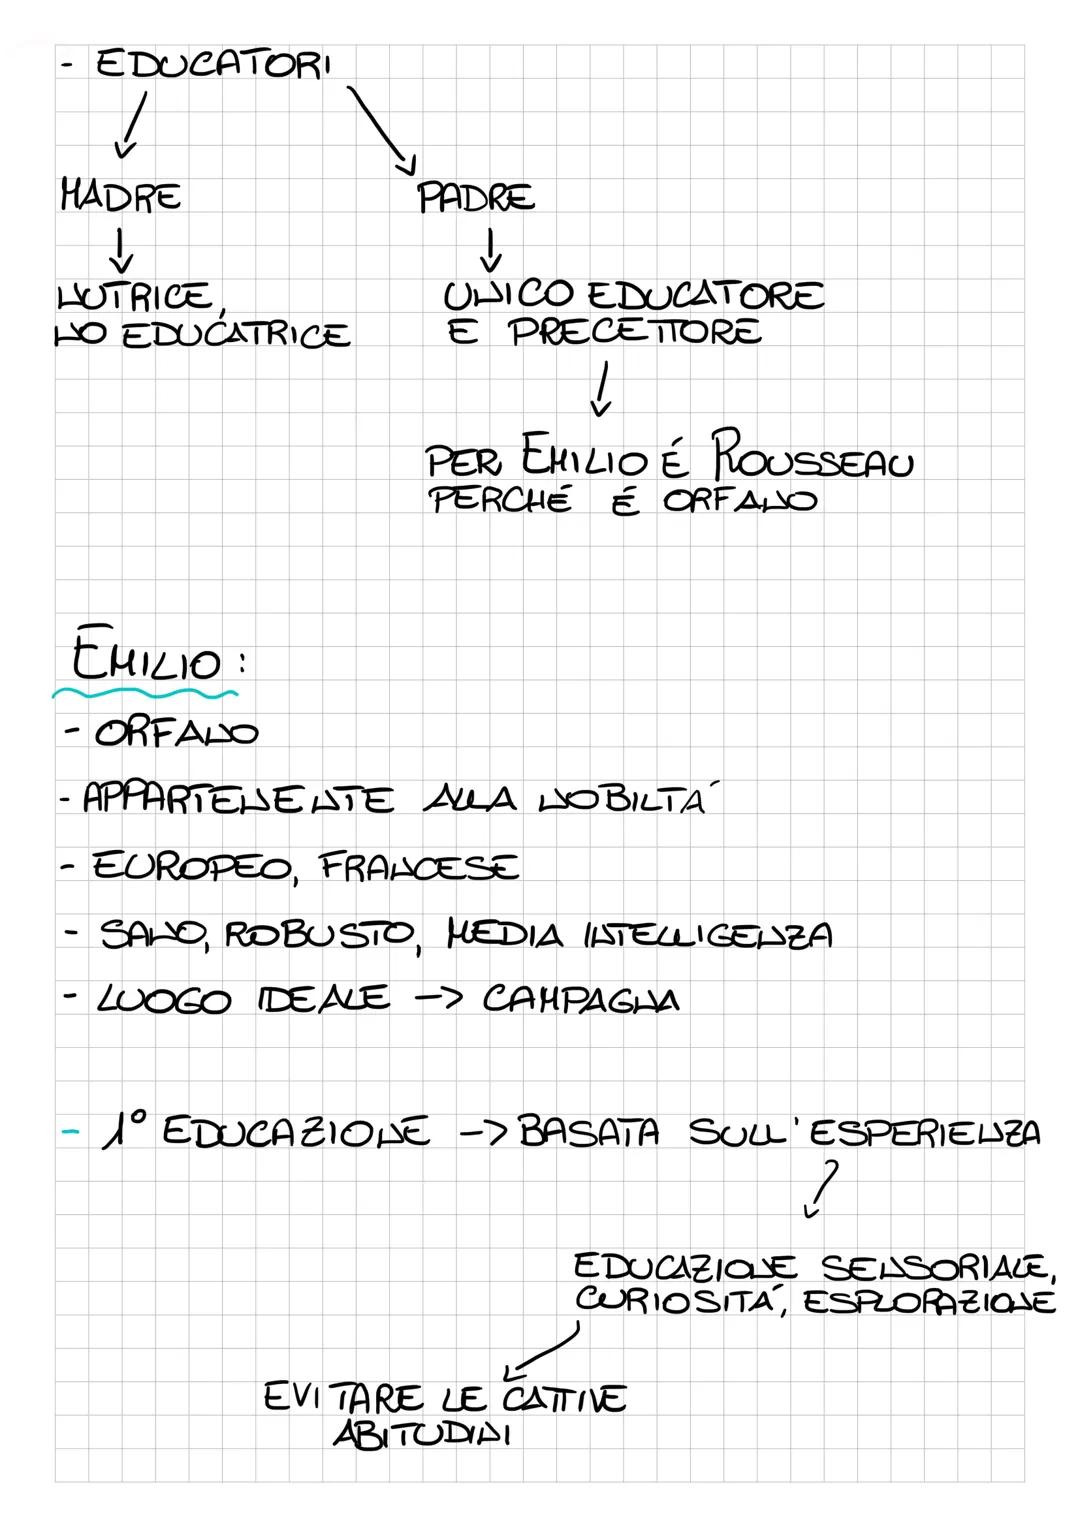 - EDUCATORI
MADRE
PADRE
NUTRICE,
NO EDUCATRICE
UNICO EDUCATORE
E PRECETTORE
PER EMILIO É ROUSSEAU
PERCHÉ É ORFANO
EMILIO:
- ORFANO
- APPARTENENTE ALLA NOBILTÁ
- EUROPEO, FRANCESE
- SANO, ROBUSTO, MEDIA INTELLIGENZA
- LUOGO IDEALE -> CAMPAGNA
- 1° EDUCAZIONE -> BASATA SULL'ESPERIENZA
EDUCAZIONE SENSORIALE,
CURIOSITÁ, ESPLORAZIONE
EVITARE LE CATTIVE
ABITUDINI